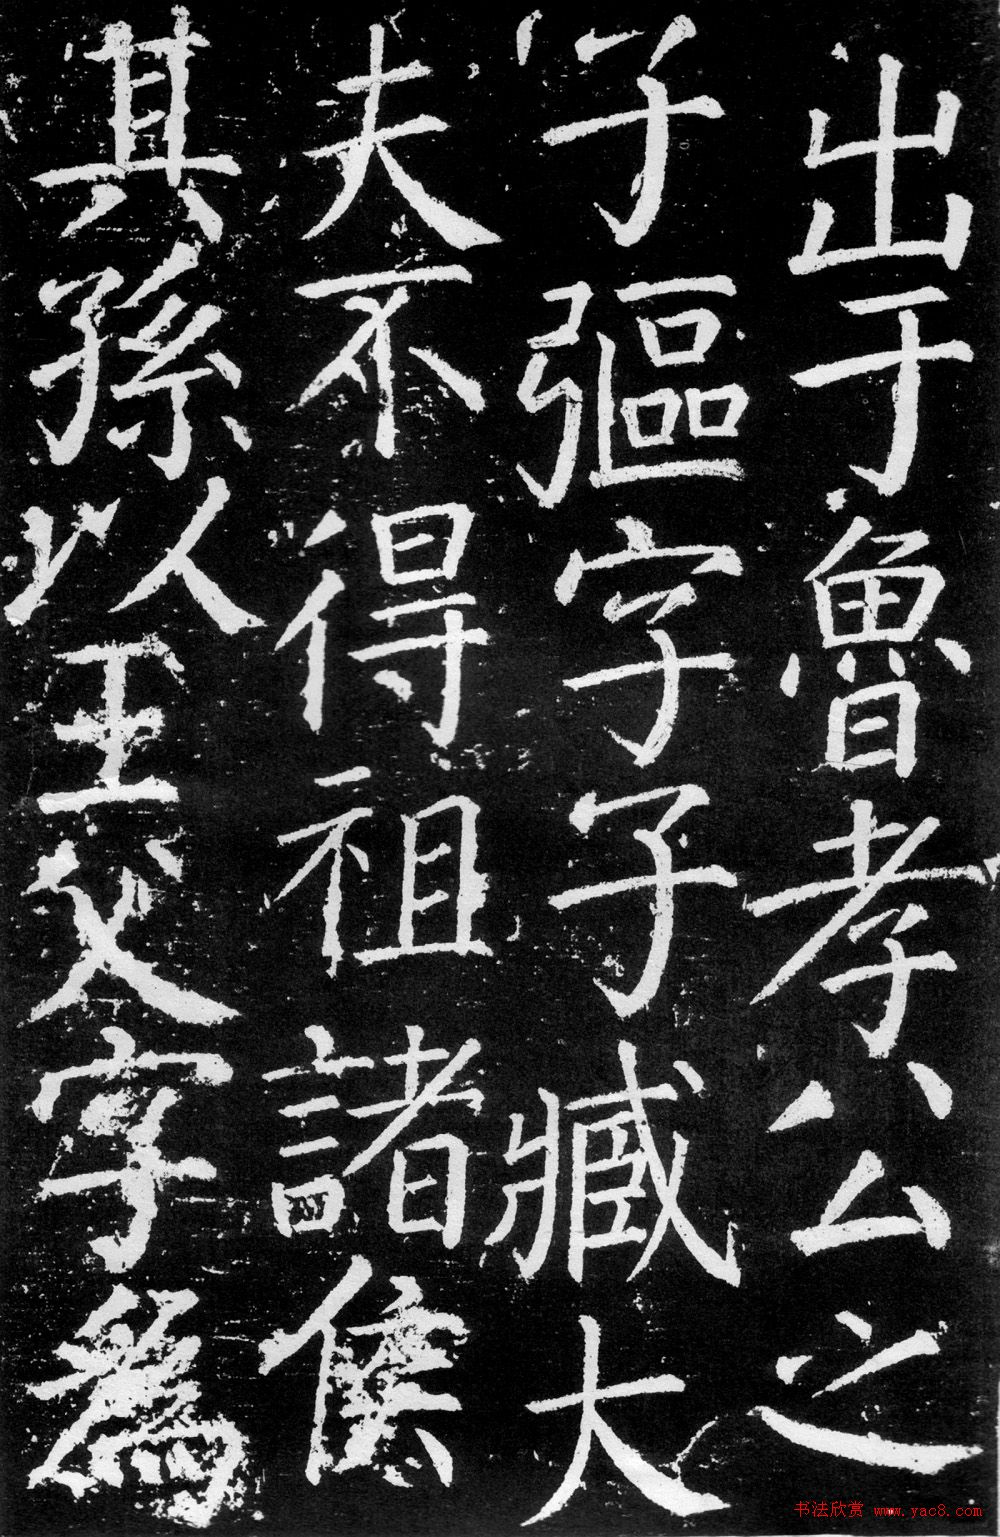 出于魯孝公之
子彄字子臧大
夫不得祖諸侯
其孫以王父字爲
书法欣赏 www.yac8.com